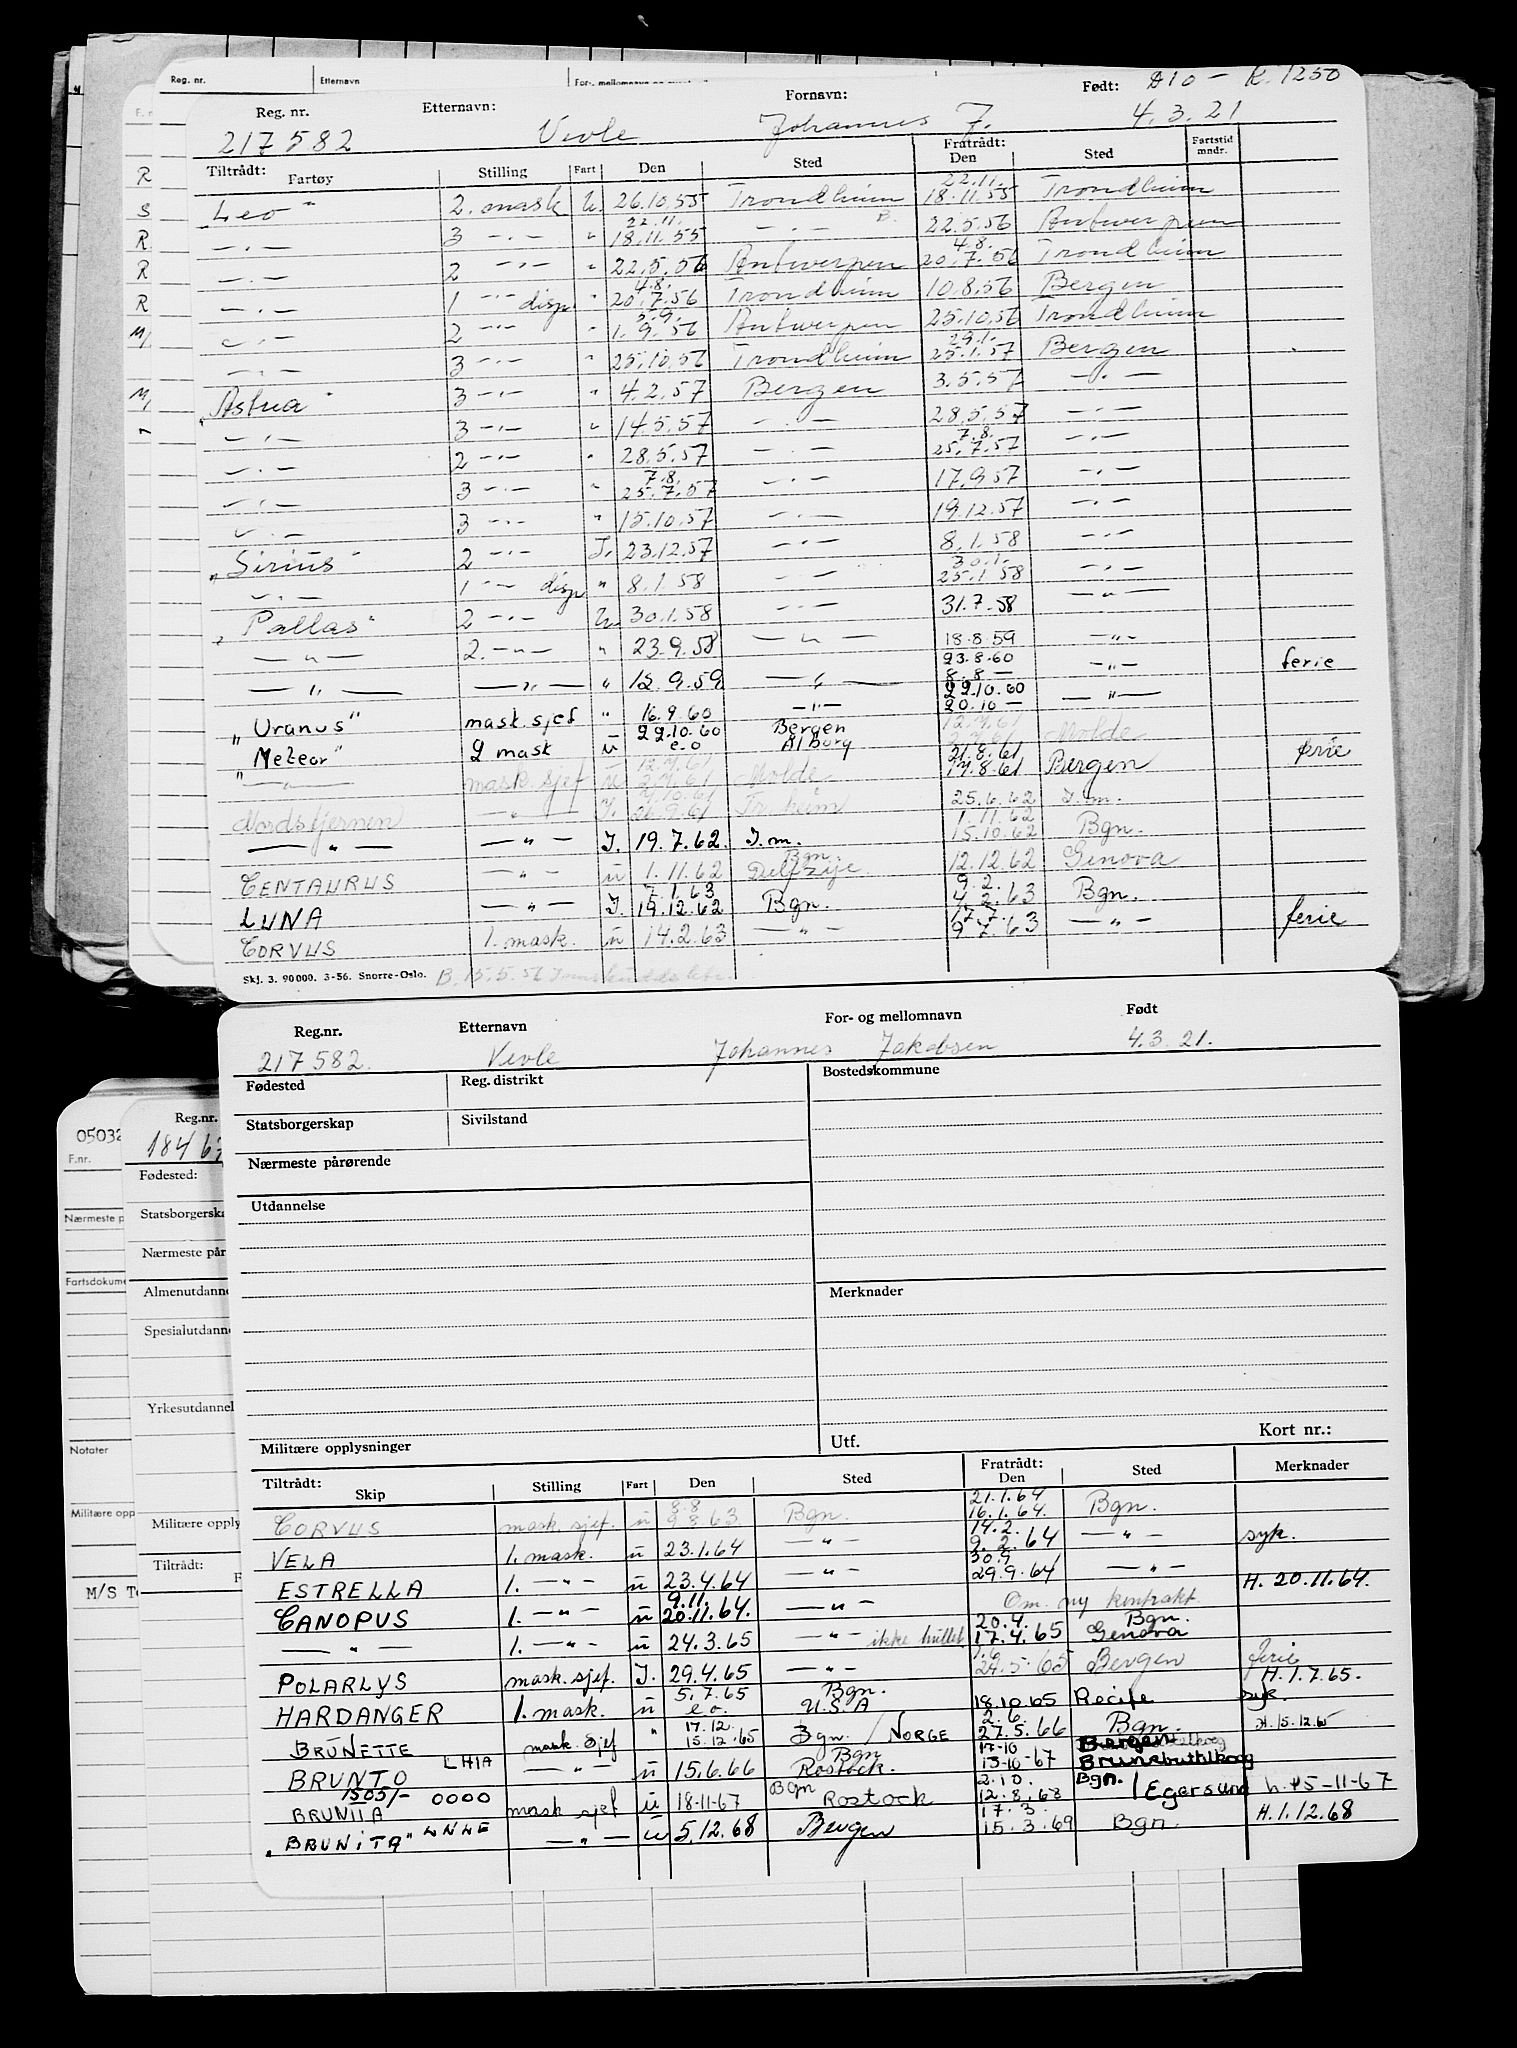 Reg. nr. Etternavn
Reg. nr. Etternavn: Fornavn: Født: A10 - K. 1250
217582 Vevle Johannes J. 4.3.21
Tiltrådt: Fartøy Stilling Fart Den Sted Fratrådt: Den Sted Fartstid mndr.
22.11.
"Leo" 2. mask U. 26.10.55 Trondheim 18.11.55 Trondheim
22.11. B.
-"- 3 -"- " 18.11.55 -"- 22.5.56 Antwerpen
4.8.
-"- 2 -"- " 22.5.56 Antwerpen 20.7.56 Trondheim
4.8.
-"- 1 -"- disp " 20.7.56 Trondheim 10.8.56 Bergen
5.9.
-"- 2 -"- " 1.9.56 Antwerpen 25.10.56 Trondheim
29.1.
-"- 3 -"- " 25.10.56 Trondheim 25.1.57 Bergen
"Astrea" 3 -"- " 4.2.57 Bergen 3.5.57 -"-
-"- 3 -"- " 14.5.57 -"- 28.5.57 -"-
7.8.
-"- 2 -"- " 28.5.57 -"- 25.7.57 -"-
7.8.
-"- 3 -"- " 25.7.57 -"- 17.9.57 -"-
-"- 3 -"- " 15.10.57 -"- 19.12.57 -"-
"Sirius" 2 -"- I. 23.12.57 -"- 8.1.58 -"-
30.1.
-"- 1 -"- disp " 8.1.58 -"- 25.1.58 -"-
"Pallas" 2 -"- U. 30.1.58 -"- 31.7.58 -"-
-"- 2. -"- " 23.9.58 -"- 18.8.59 -"-
23.8.60
-"- -"- " 12.9.59 -"- 8.8 - -"- ferie
22.10.60
"Uranus" mask.sjef " 16.9.60 -"- 20.10 - -"-
22.10.60 Bergen 12.4.61
"Meteor" 2 mask ü e.o Ålborg Molde
12.4.61 21.8.61
-"- mask.sjef ü Molde 17.8.61 Bergen ferie
Nordstjernen -"- I. 26.9.61 Tr.heim 25.6.62 I.m.
1.11.62
-"- -"- I. 19.7.62. I.m. 15.10.62 Bgn.
Bgn.
CENTAURUS -"- ü 1.11.62 Delfzije. 12.12.62 Genova
7.1.63 9.2.
LUNA -"- I. 19.12.62 Bgn. 4.2.63 Bgn.
17.7.
CORVUS 1. mask. ü 14.2.63 -"- 9.7.63 -"- ferie
Skj. 3. 90000. 3-56. Snorre-Oslo. B. 15.5.56
Reg.nr. Etternavn For- og mellomnavn Født
217582. Vevle Johannes Jakobsen 4.3.21.
Fødested Reg. distrikt Bostedskommune
Statsborgerskap Sivilstand
Nærmeste pårørende
Utdannelse
Merknader
Militære opplysninger Utf. Kort nr.:
Tiltrådt: Skip Stilling Fart Den Sted Fratrådt: Den Sted Merknader
8.8 21.1.64
CORVUS mask.sjef. ü 9.8.63 Bgn. 16.1.64. Bgn.
14.2.
VELA 1. mask. ü 23.1.64 -"- 9.2.64 -"- syk.
30.9
ESTRELLA 1. -"- ü 23.4.64 -"- 29.9.64 -"-
9.11. H. 20.11.64.
CANOPUS 1. -"- ü 20.11.64. -"- Om. ny kontrakt.
20.4. Bgn.
-"- 1. -"- ü 24.3.65 -"- ikke hullet 17.4.65 Genova
POLARLYS mask.sjef. I. 29.4.65 -"- 24.5.65 Bergen ferie
5.7.65 Bgn. H. 1.7.65.
HARDANGER 1. mask. ü e.o. U.S.A 18.10.65 Recife syk.
17.12. 2.6.
BRUNETTE mask.sjef " 15.12.65 Bgn. / NORGE 27.5.66 Bgn. H. 15.12.65
Bgn 17-10 Bergen
BRUNTO LHIA -"- ü 15.6.66 Rostock. 13-10-67 Brunsbuttlkoog
1505/- 2.10. Bgn.
BRUNITA 0000 mask sjef ü 18-11-67 Bgn Rostock 12.8.68 / Egersund h. 15-11-67
17.3.
"BRUNITA" LNLE -"- ü 5.12.68 Bergen 15.3.69 Bgn. H. 1.12.68
05032
F.nr.
Nærmeste p
Fartsdokume
Notater
Militære opp
M/S
Reg.nr.
Fødested:
Statsborgerska
Nærmeste pår
Almenutdanne
Spesialutdanne
Yrkesutdannel
Militære opply
Tiltrådt: